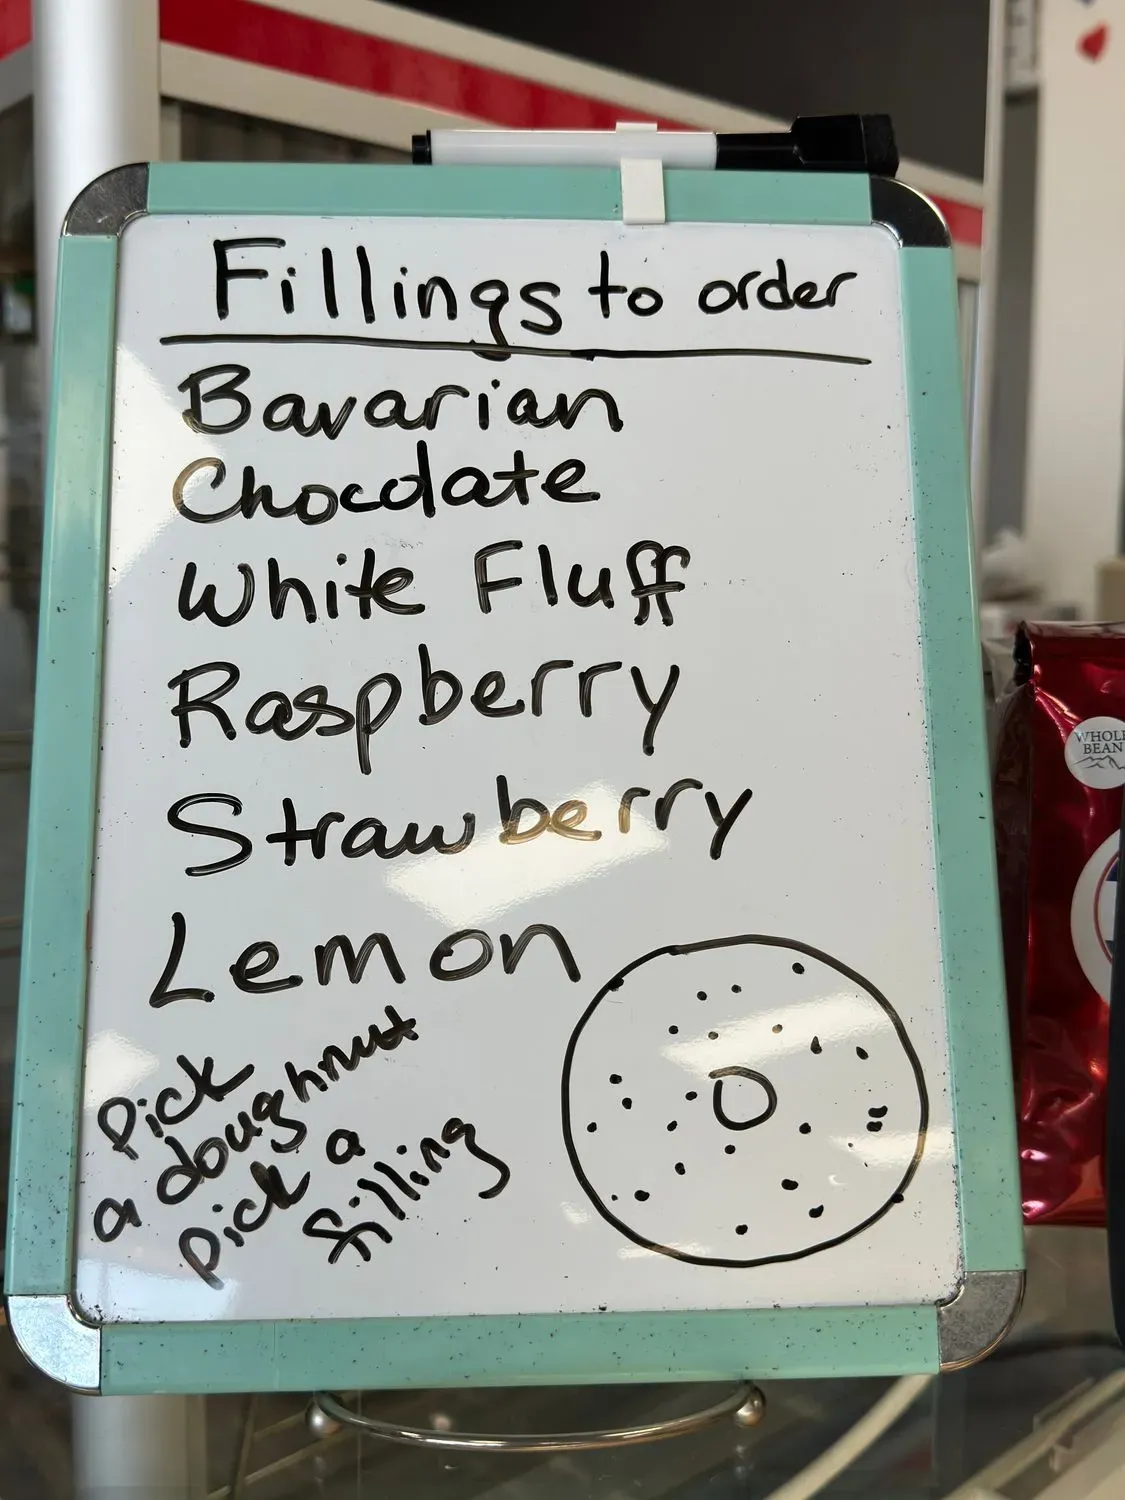 Fillings to order
Bavarian
Chocolate
White Fluff
Raspberry
Strawberry
Lemon
Pick
a doughnut
pick a
filling
WHOLE
BEAN